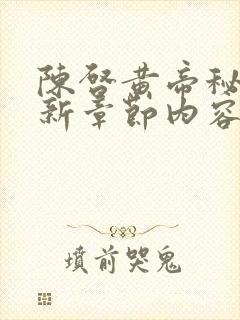 陳啓黄帝秘
新章節内容
墳前哭鬼